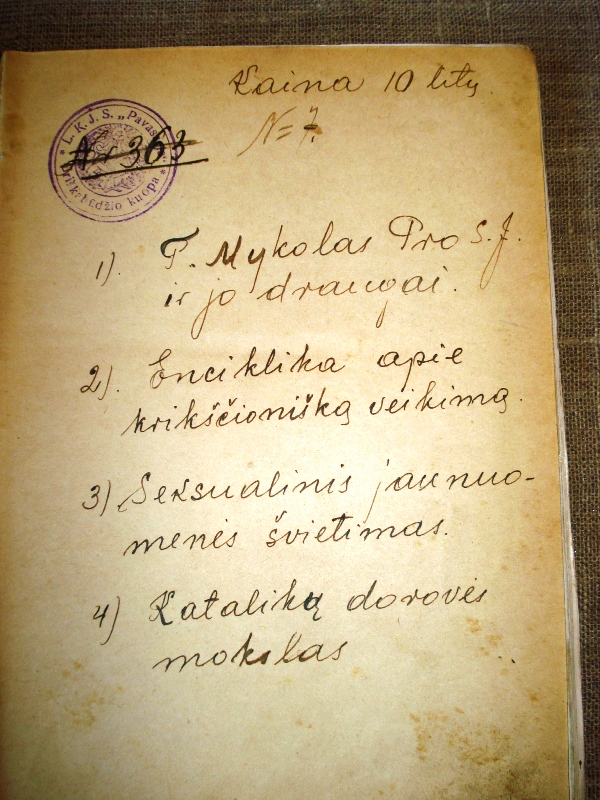 Kaina 10 litų.
N=7.
L. K. J. S. „Pavas
kuopa
Nr 363
1). T. Mykolas Pro S.J.
ir jo draugai.
2). Enciklika apie
krikščionišką veikimą.
3) Seksualinis jaunuo-
menės švietimas.
4) Katalikų dorovės
mokslas